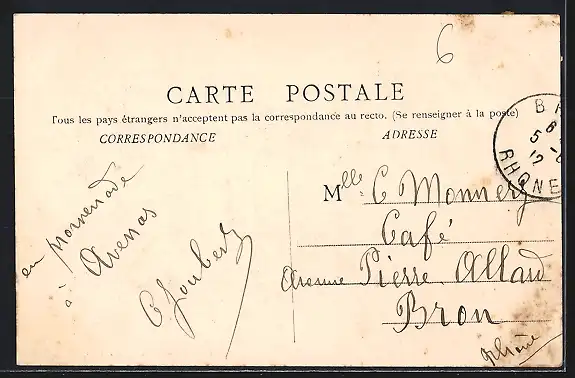 6
CARTE POSTALE
Tous les pays étrangers n'acceptent pas la correspondance au recto. (Se renseigner à la poste)
CORRESPONDANCE
ADRESSE
en promenade
à Avenas
C Joubert
Mlle C Monnery
Café
Avenue Pierre Allard
Bron
Rhône
RHONE